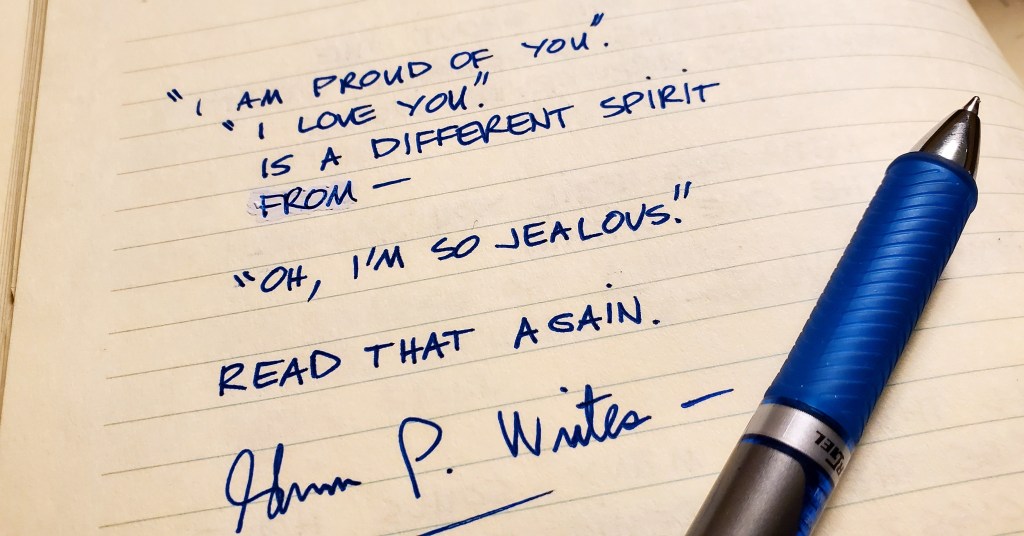 "I AM PROUD OF YOU".
"I LOVE YOU."
IS A DIFFERENT SPIRIT
FROM —
"OH, I'M SO JEALOUS."
READ THAT AGAIN.
P. Writes —